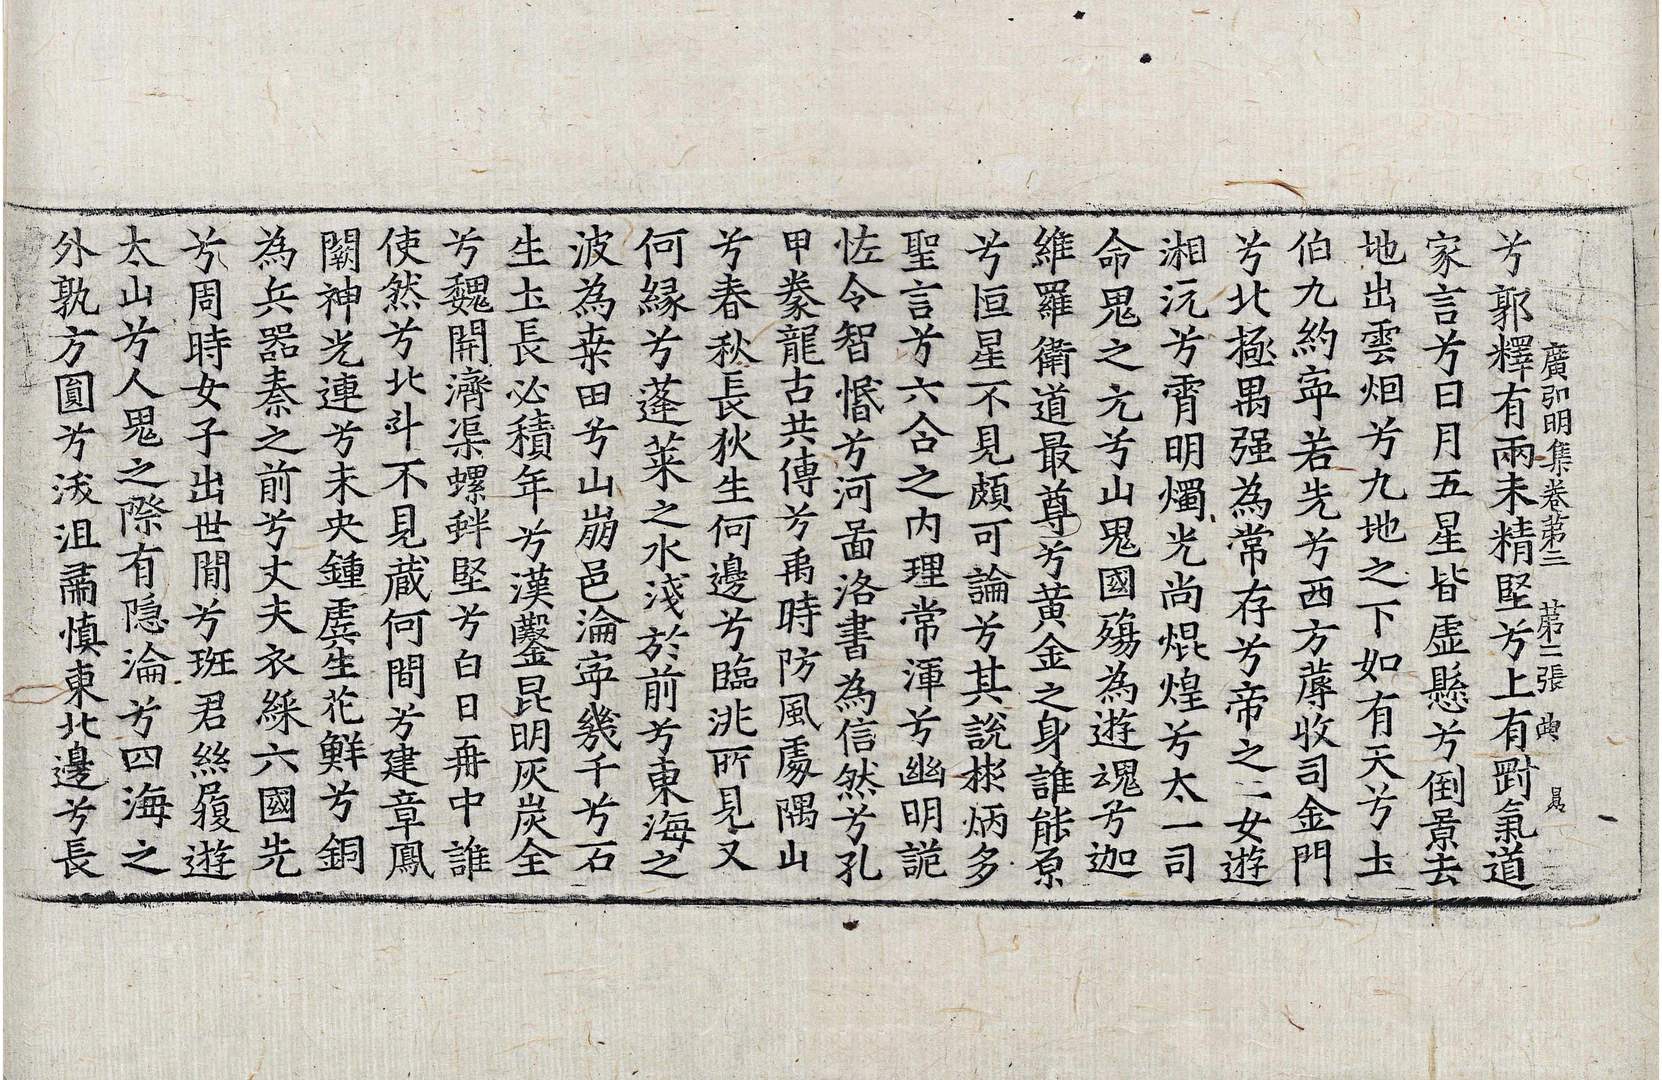 廣弘明集卷第三 第二張 典
兮郭釋有兩未精堅兮上有對氣道
家言兮日月五星皆虛懸兮倒景去
地出雲烟兮九地之下如有天兮土
伯九約寧若先兮西方蓐收司金門
兮北極禺强為常存兮帝之二女遊
湘沅兮霄明燭光尚焜煌兮太一司
命鬼之亢兮山鬼國殤為遊魂兮迦
維羅衛道最尊兮黃金之身誰能原
兮恒星不見頗可論兮其說彬炳多
聖言兮六合之內理常渾兮幽明詭
怪令智惛兮河啚洛書為信然兮孔
甲豢龍古共傳兮禹時防風處隅山
兮春秋長狄生何邊兮臨洮所見又
何緣兮蓬萊之水淺於前兮東海之
波為桒田兮山崩邑淪寧幾千兮石
生土長必積年兮漢鑿昆明灰炭全
兮魏開濟渠螺蚌堅兮白日再中誰
使然兮北斗不見藏何間兮建章鳳
闕神光連兮未央鍾虡生花鮮兮銅
為兵器秦之前兮丈夫衣綵六國先
兮周時女子出世間兮班君絲履遊
太山兮人鬼之際有隱淪兮四海之
外孰方圓兮沃沮肅慎東北邊兮長